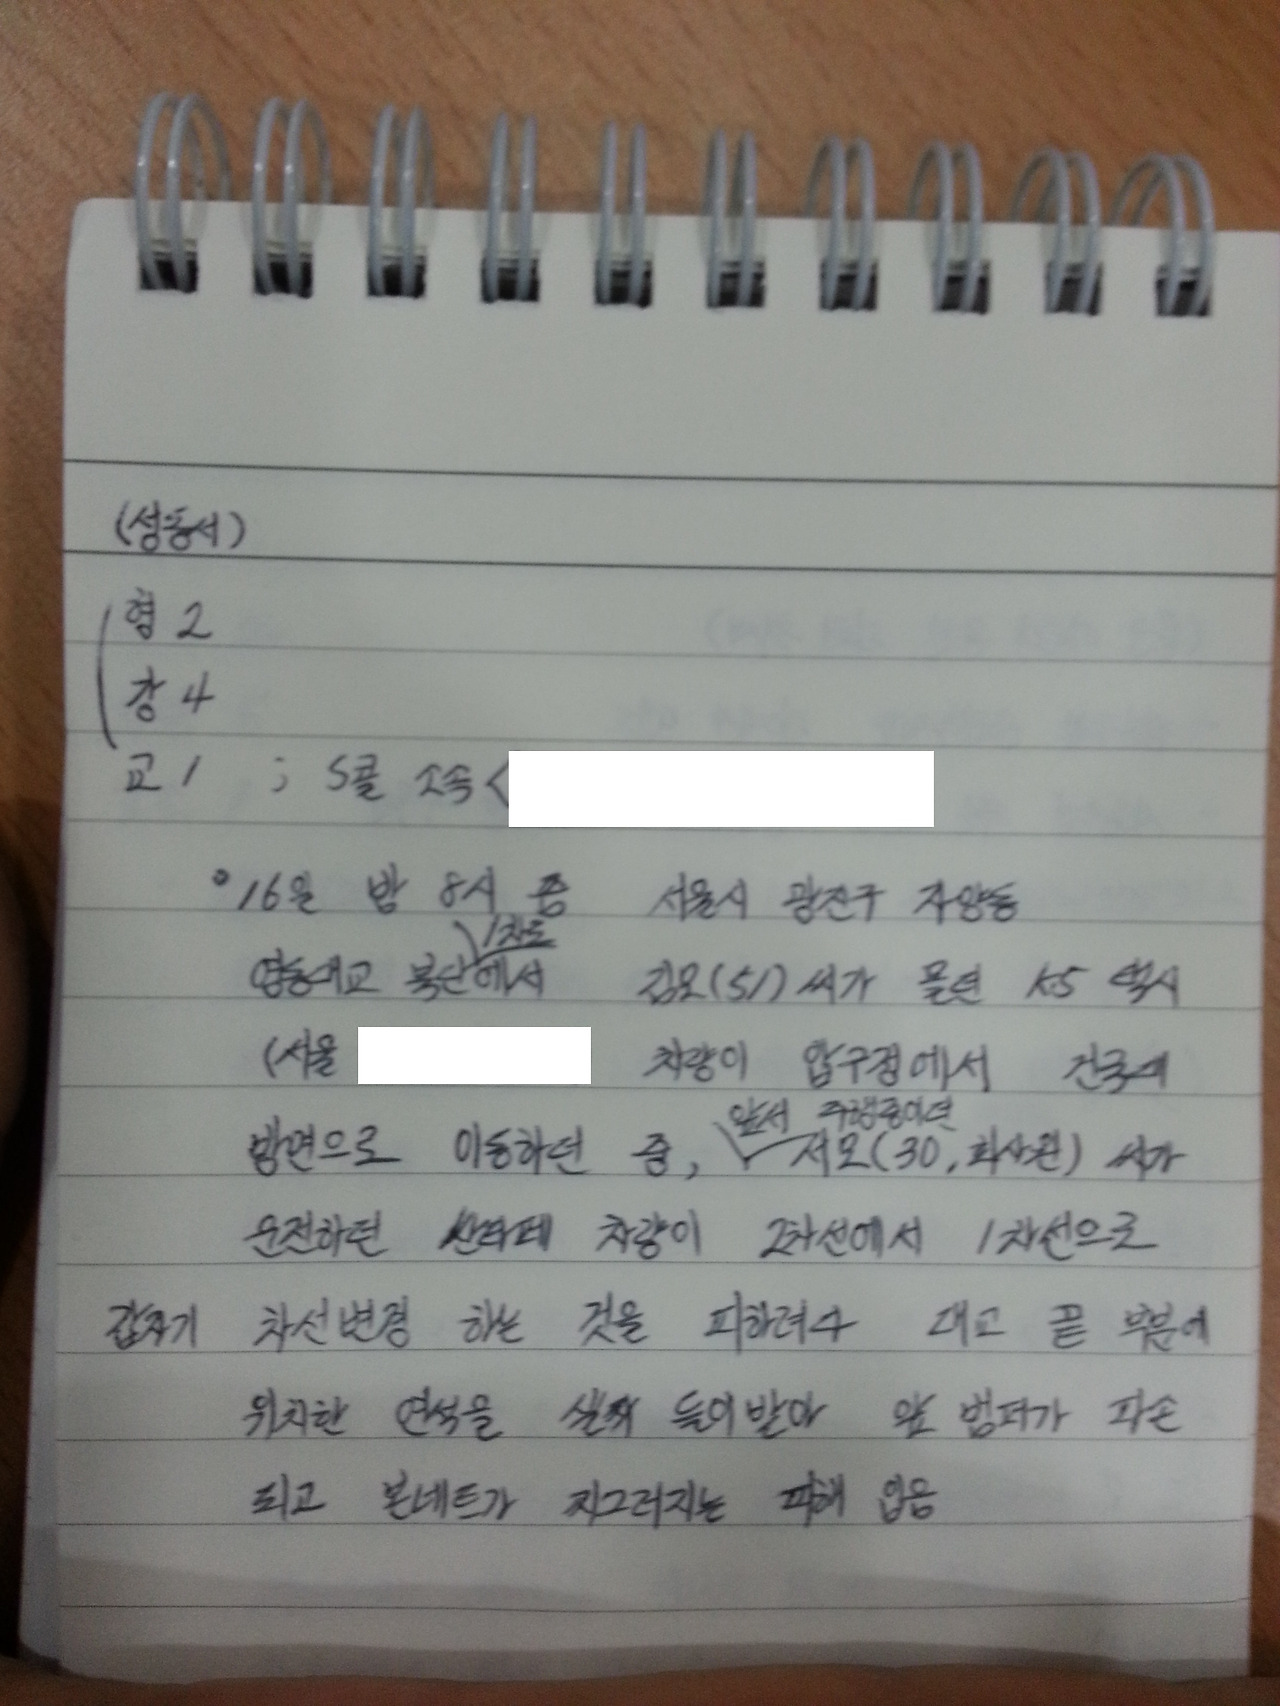 (성동서)
형 2
강 4
교 1 ; S콜 소속 <
°16일 밤 8시 쯤 서울시 광진구 자양동
1차로
영동대교 북단에서 김모(51) 씨가 몰던 K5 택시
(서울 차량이 압구정에서 건국대
앞서 주행중이던
방면으로 이동하던 중, 서모(30, 회사원) 씨가
운전하던 싼타페 차량이 2차선에서 1차선으로
갑자기 차선변경 하는 것을 피하려다 대교 끝 부분에
위치한 연석을 살짝 들이받아 앞 범퍼가 파손
되고 본네트가 찌그러지는 피해 입음